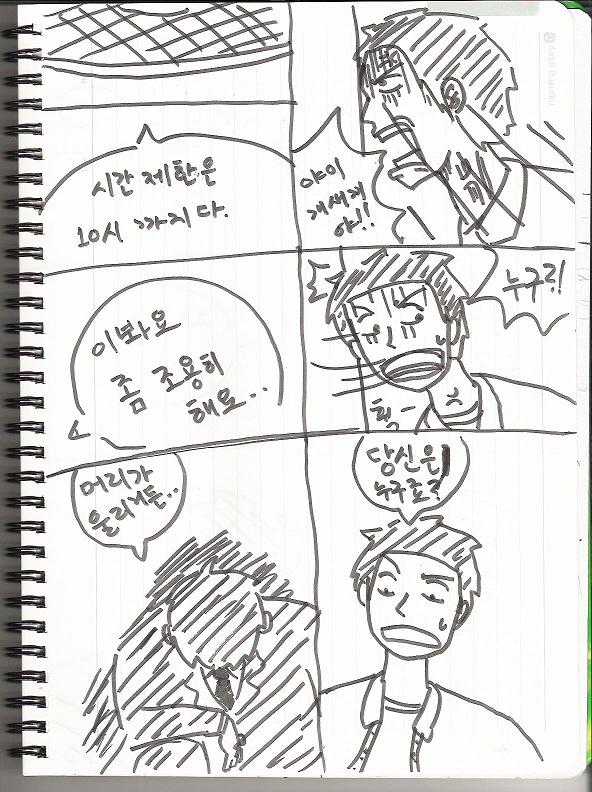 시간 제한은
10시 까지다.
야이
개새끼
야!!
이봐요
좀 조용히
해요..
누구릿!
휙-
머리가
울리거든..
당신은
누구죠?
morning glory